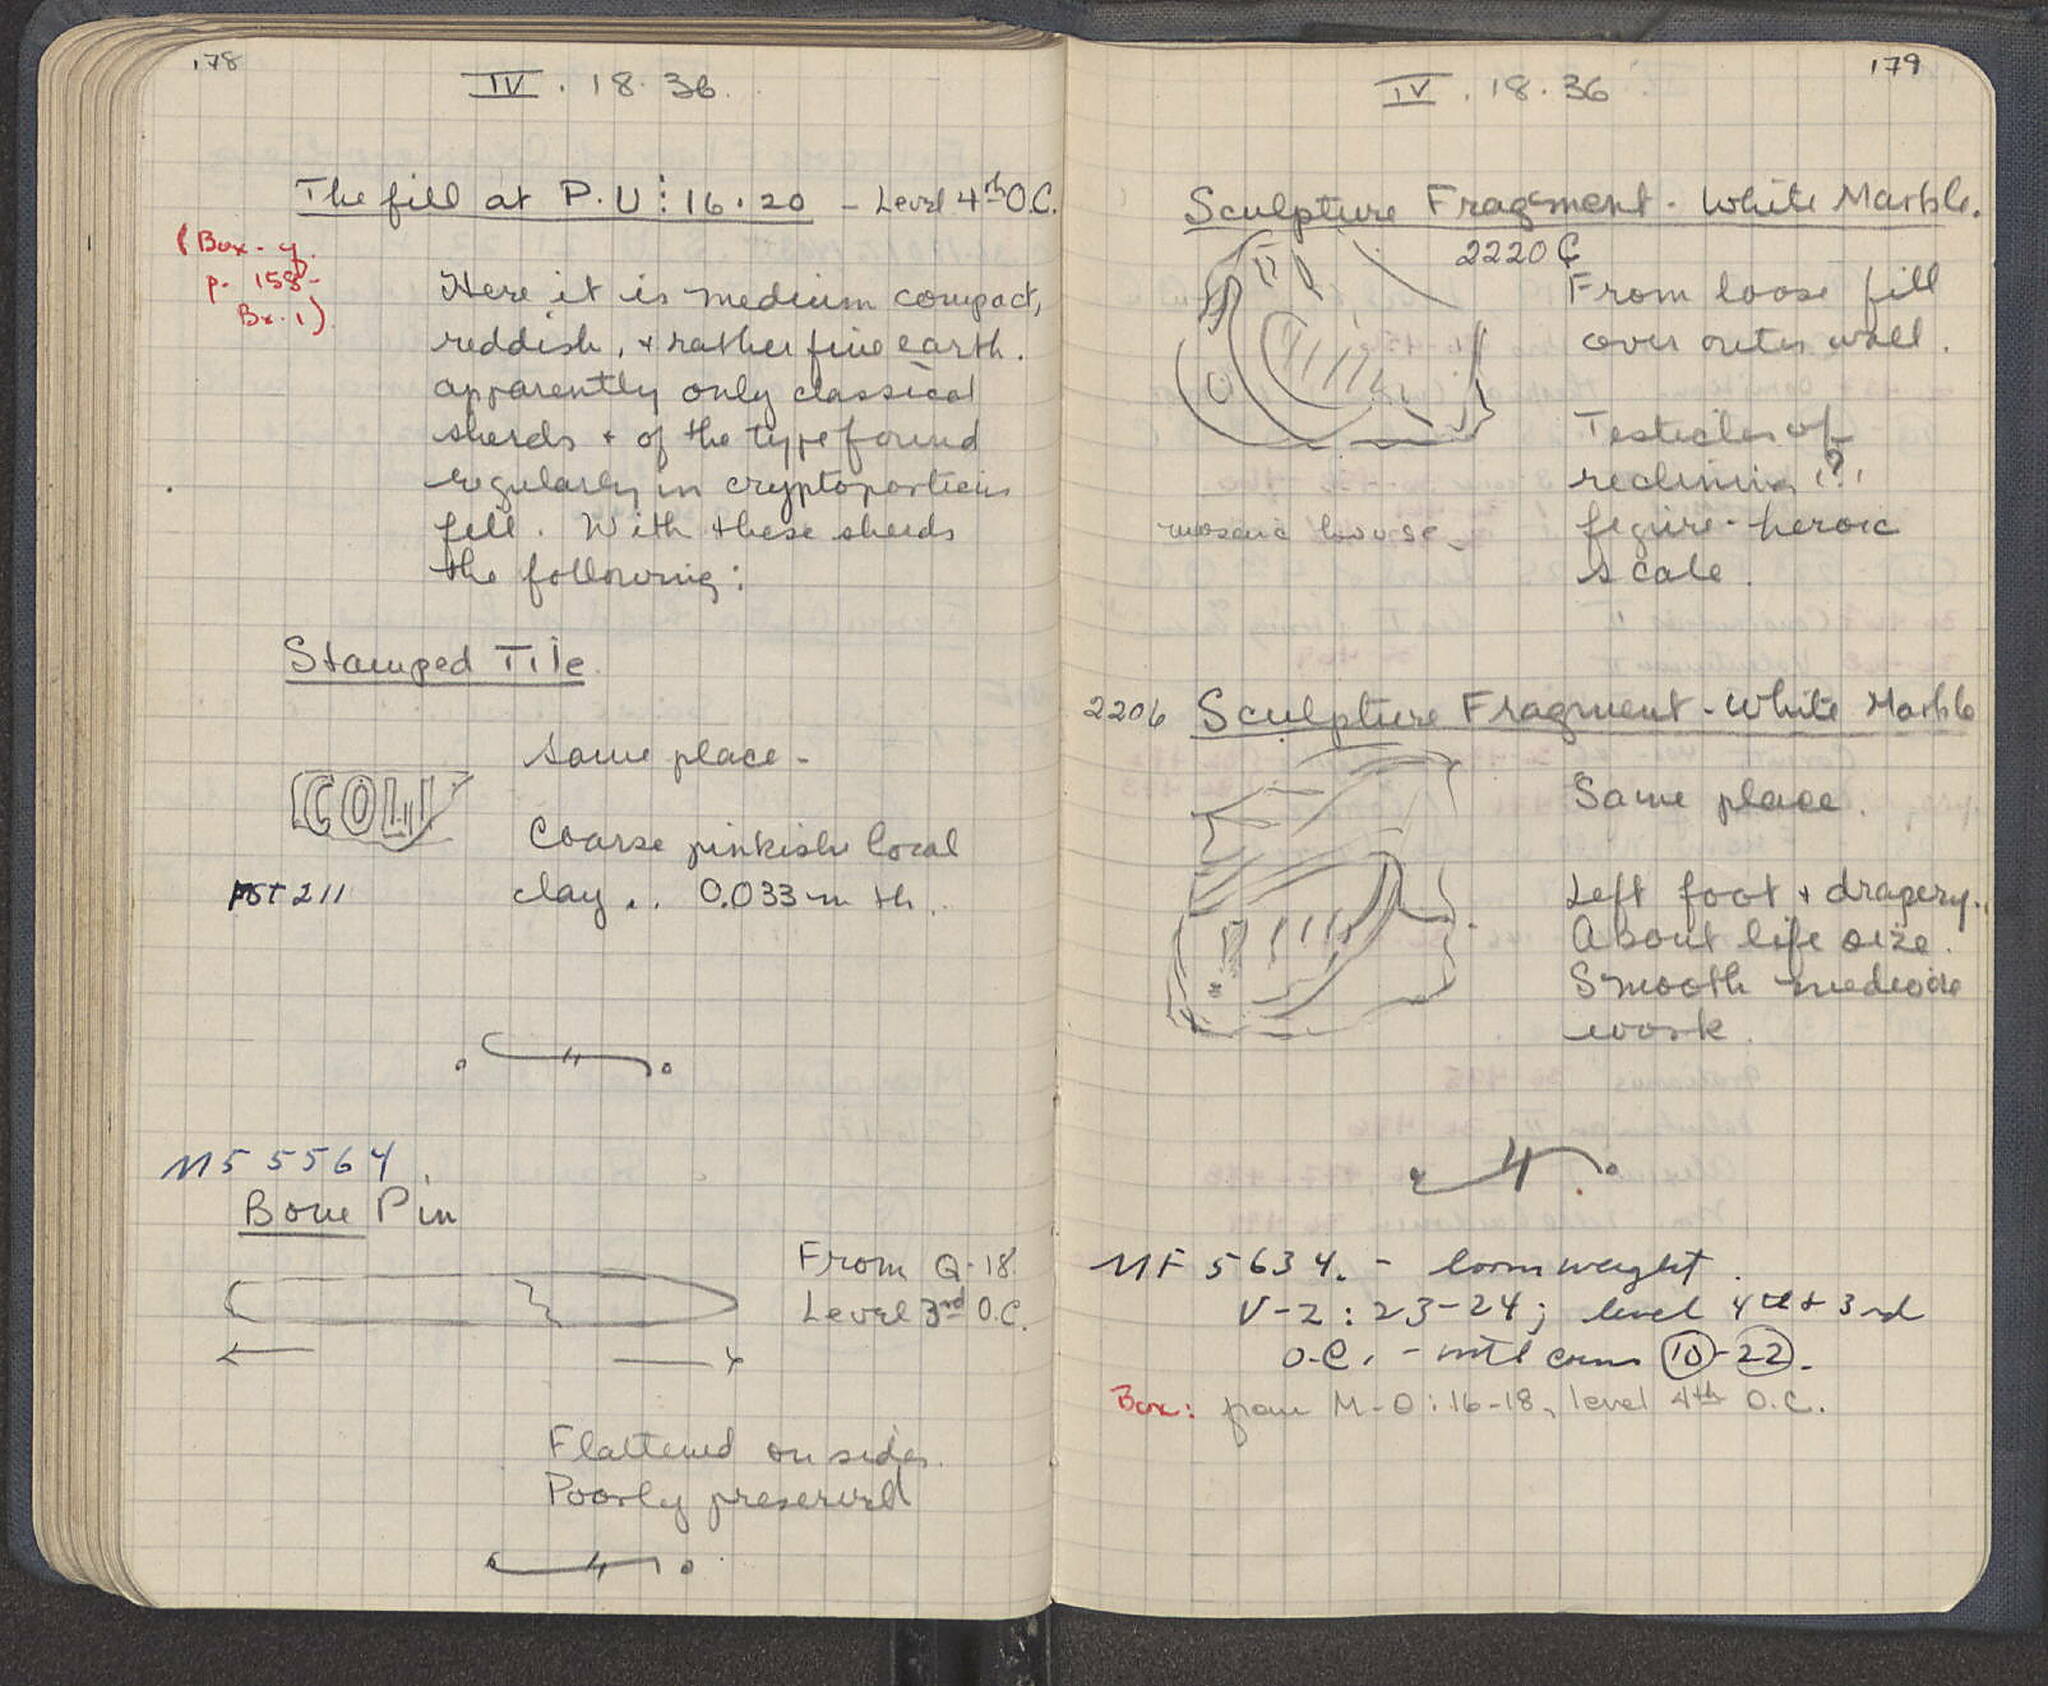 178
IV . 18. 36.
The fill at P.U : 16.20 - Level 4th O.C.
(Box - cf.
p. 158 -
Bx. 1)
Here it is medium compact,
reddish, + rather fine earth.
apparently only classical
sherds + of the type found
regularly in cryptoporticus
fill. With these sherds
the following:
Stamped Tile
Same place -
COL
Coarse pinkish local
clay. . 0.033 m th.
211
MF 5564.
Bone Pin
From Q-18
Level 3rd O.C.
Flattened on sides.
Poorly preserved
179
IV . 18. 36
Sculpture Fragment - White Marble.
2220
From loose fill
over outer wall.
Testicles of
reclining (?)
mosaic house -
figure - heroic
scale.
2206 Sculpture Fragment - White Marble
Same place.
Left foot + drapery.
About life size.
Smooth mediocre
work.
MF 5634. - loomweight.
V-Z : 23-24; level 4th + 3rd
O.C. - with coins 10-22.
Box: from M-O : 16-18, level 4th O.C.